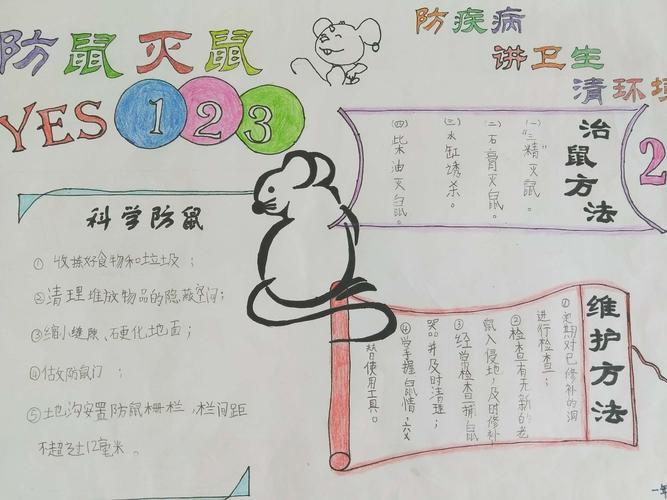 防鼠灭鼠
YES 1 2 3
防疾病
讲卫生
清环境
科学防鼠
①收捡好食物和垃圾；
②清理堆放物品的隐蔽空间；
③缩小缝隙、硬化地面；
④估放防鼠门；
⑤地沟安置防鼠栅栏，栏间距
不超过12毫米。
治鼠方法
2
(一)“三精”灭鼠。
(二)石膏灭鼠。
(三)水缸诱杀。
(四)柴油灭鼠。
维护方法
①定期对已修补的洞
进行检查；
②检查有无新的老
鼠入侵地，及时修补
③经常检查捕鼠
器并及时清理；
④掌握鼠情，
替使用工具。